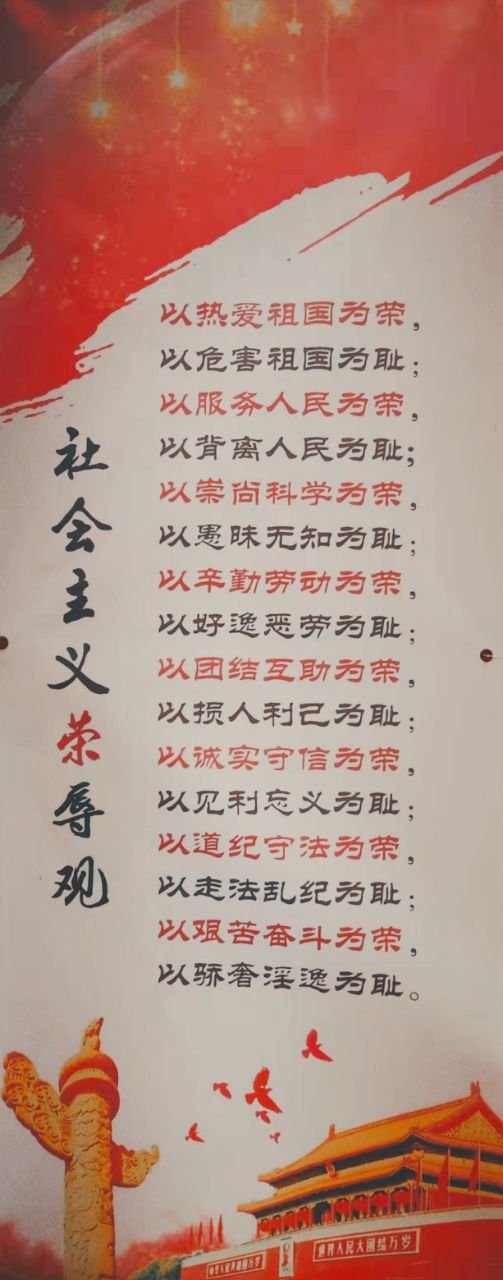 社会主义荣辱观
以热爱祖国为荣，
以危害祖国为耻；
以服务人民为荣，
以背离人民为耻；
以崇尚科学为荣，
以愚昧无知为耻；
以辛勤劳动为荣，
以好逸恶劳为耻；
以团结互助为荣，
以损人利己为耻；
以诚实守信为荣，
以见利忘义为耻；
以道纪守法为荣，
以走法乱纪为耻；
以艰苦奋斗为荣，
以骄奢淫逸为耻。
世界人民大团结万岁